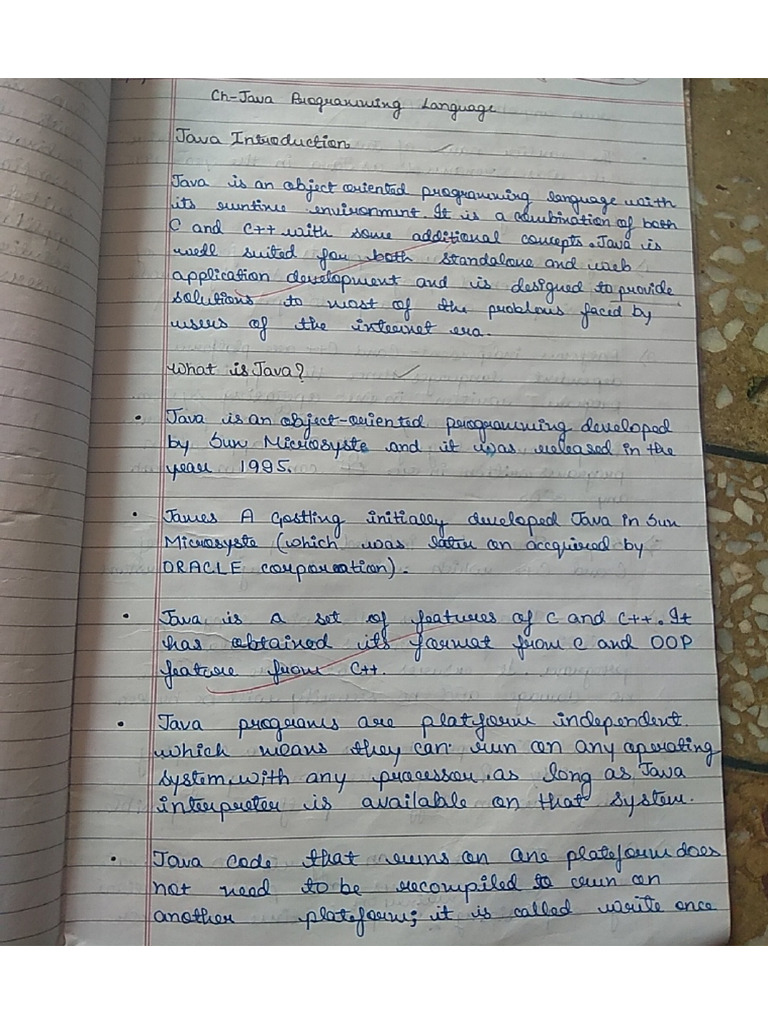 Ch-Java Programming Language
Java Introduction
Java is an object oriented programming language with
its runtime environment. It is a combination of both
C and C++ with some additional concepts. Java is
well suited for both standalone and web
application development and is designed to provide
solutions to most of the problems faced by
users of the internet era.
What is Java?
• Java is an object-oriented programming developed
by Sun Microsyste and it was released in the
year 1995.
• James A Gostling initially developed Java in Sun
Microsyste (which was later on accquired by
ORACLE corporation).
• Java is a set of features of C and C++. It
has obtained its format from C and OOP
feature from C++.
• Java programs are platform independent.
which means they can run on any operating
system with any processor as long as Java
interpreter is available on that system.
• Java code that runs on one plateform does
not need to be recompiled to run on
another plateform; it is called write once